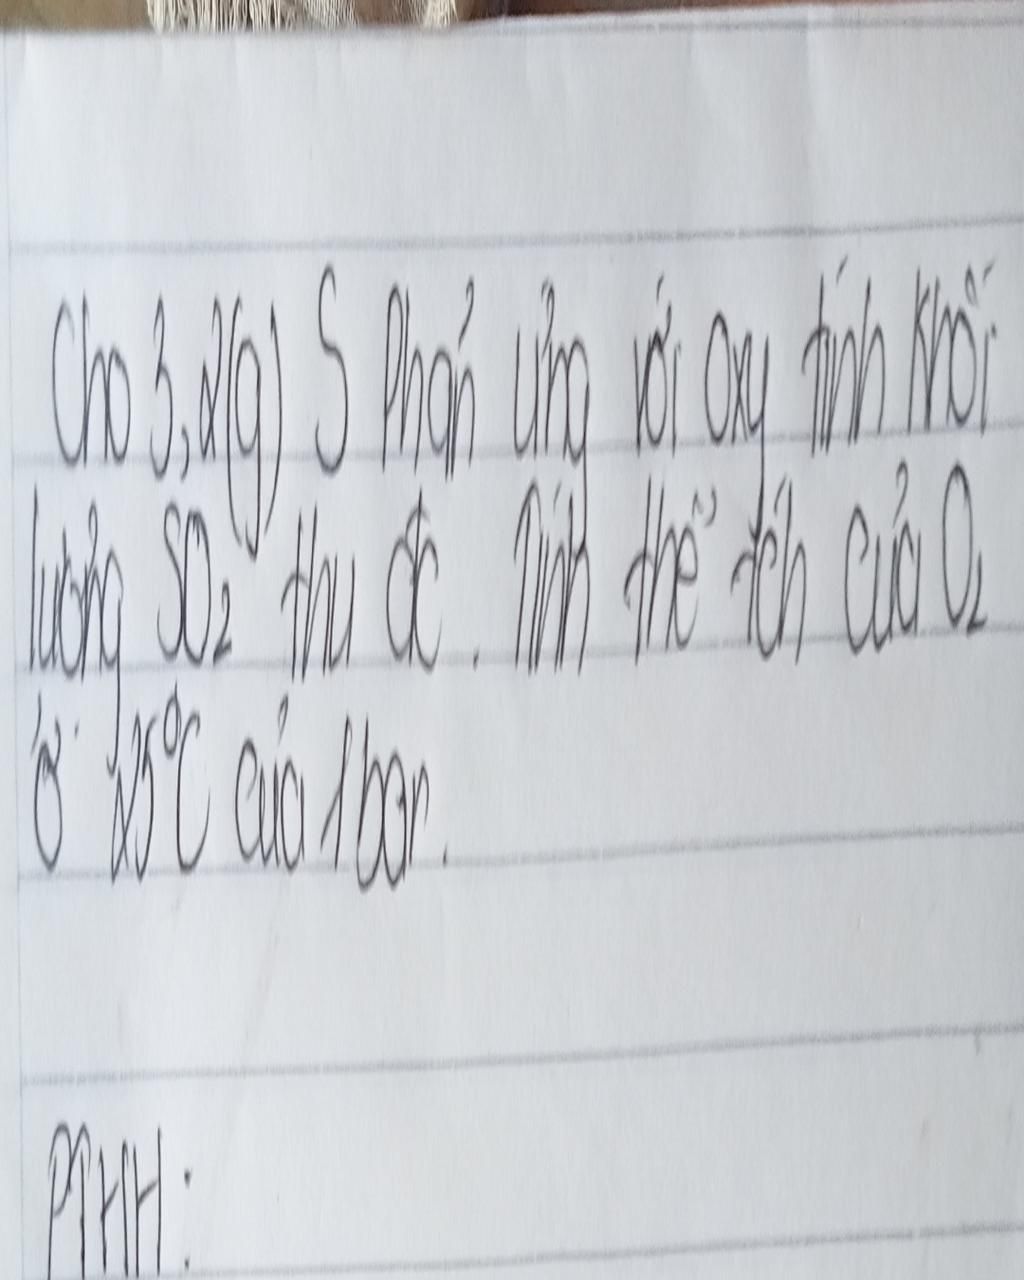 Cho 3,2(g) S Phản ứng với Oxy tính khối
lượng SO₂ thu đc. Tính thể tích của O₂
ở 25°C của 1 bar.
PTHH: